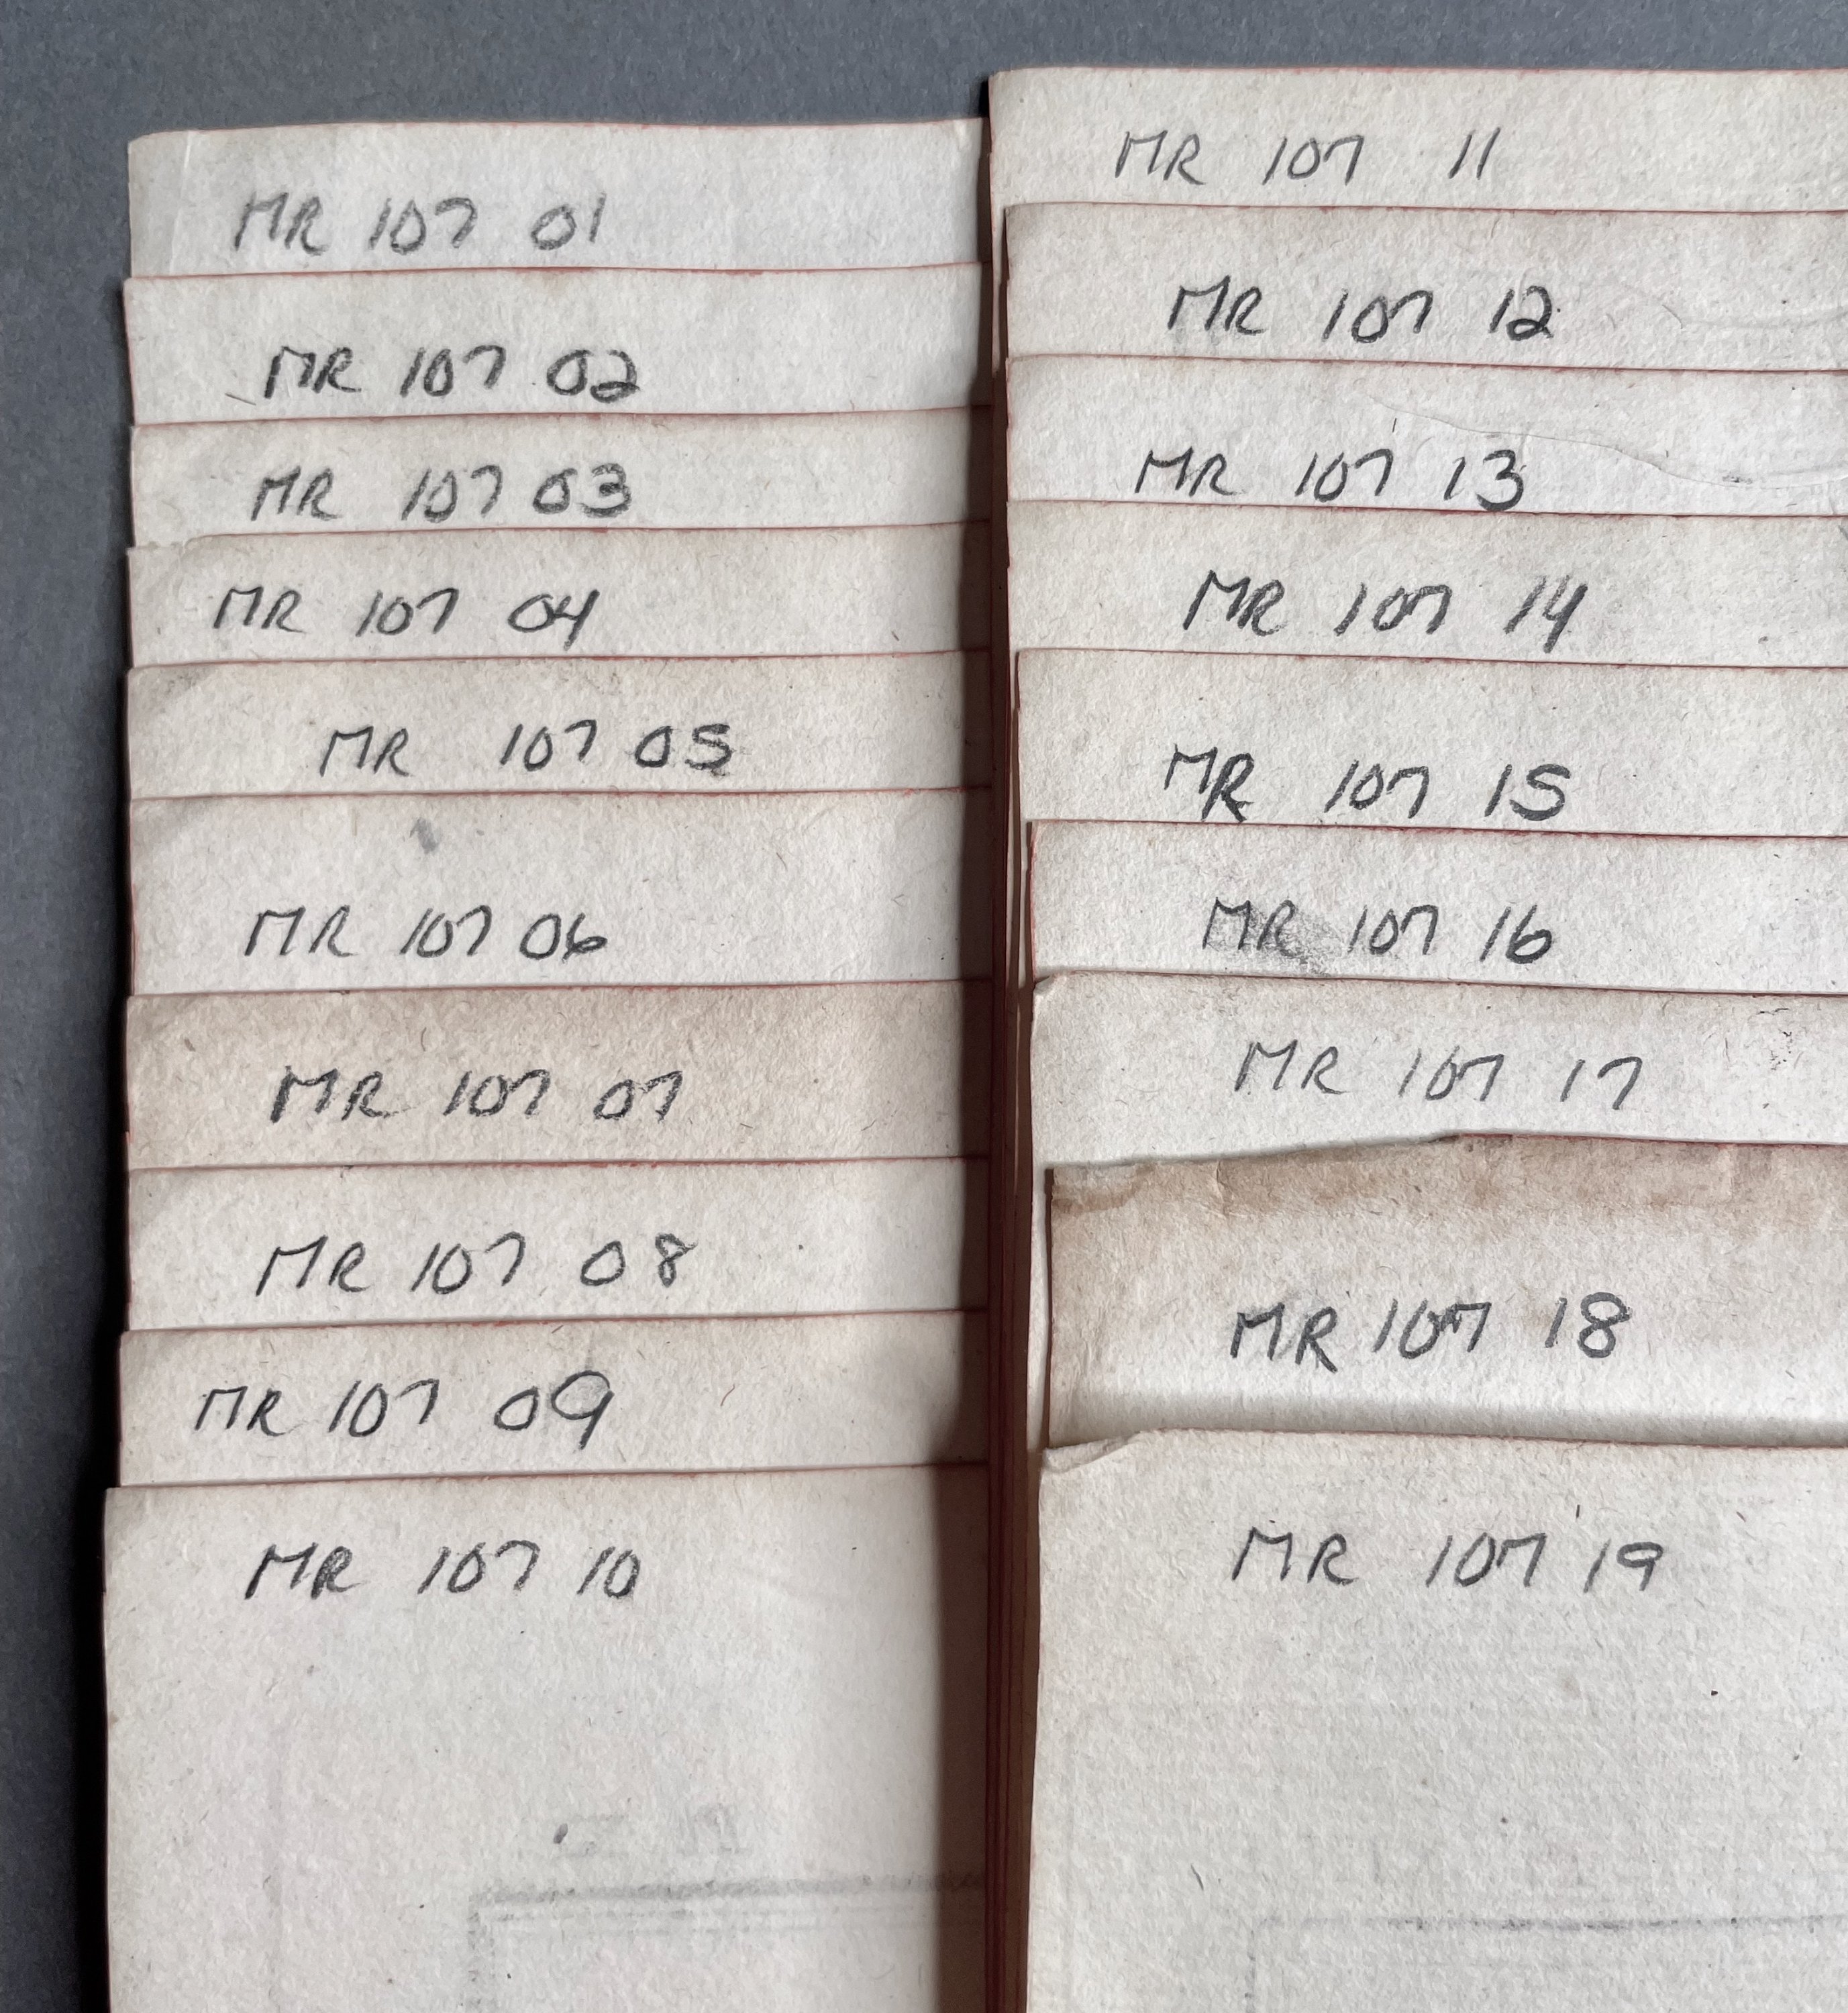 MR 107 01
MR 107 02
MR 107 03
MR 107 04
MR 107 05
MR 107 06
MR 107 07
MR 107 08
MR 107 09
MR 107 10
MR 107 11
MR 107 12
MR 107 13
MR 107 14
MR 107 15
MR 107 16
MR 107 17
MR 107 18
MR 107 19